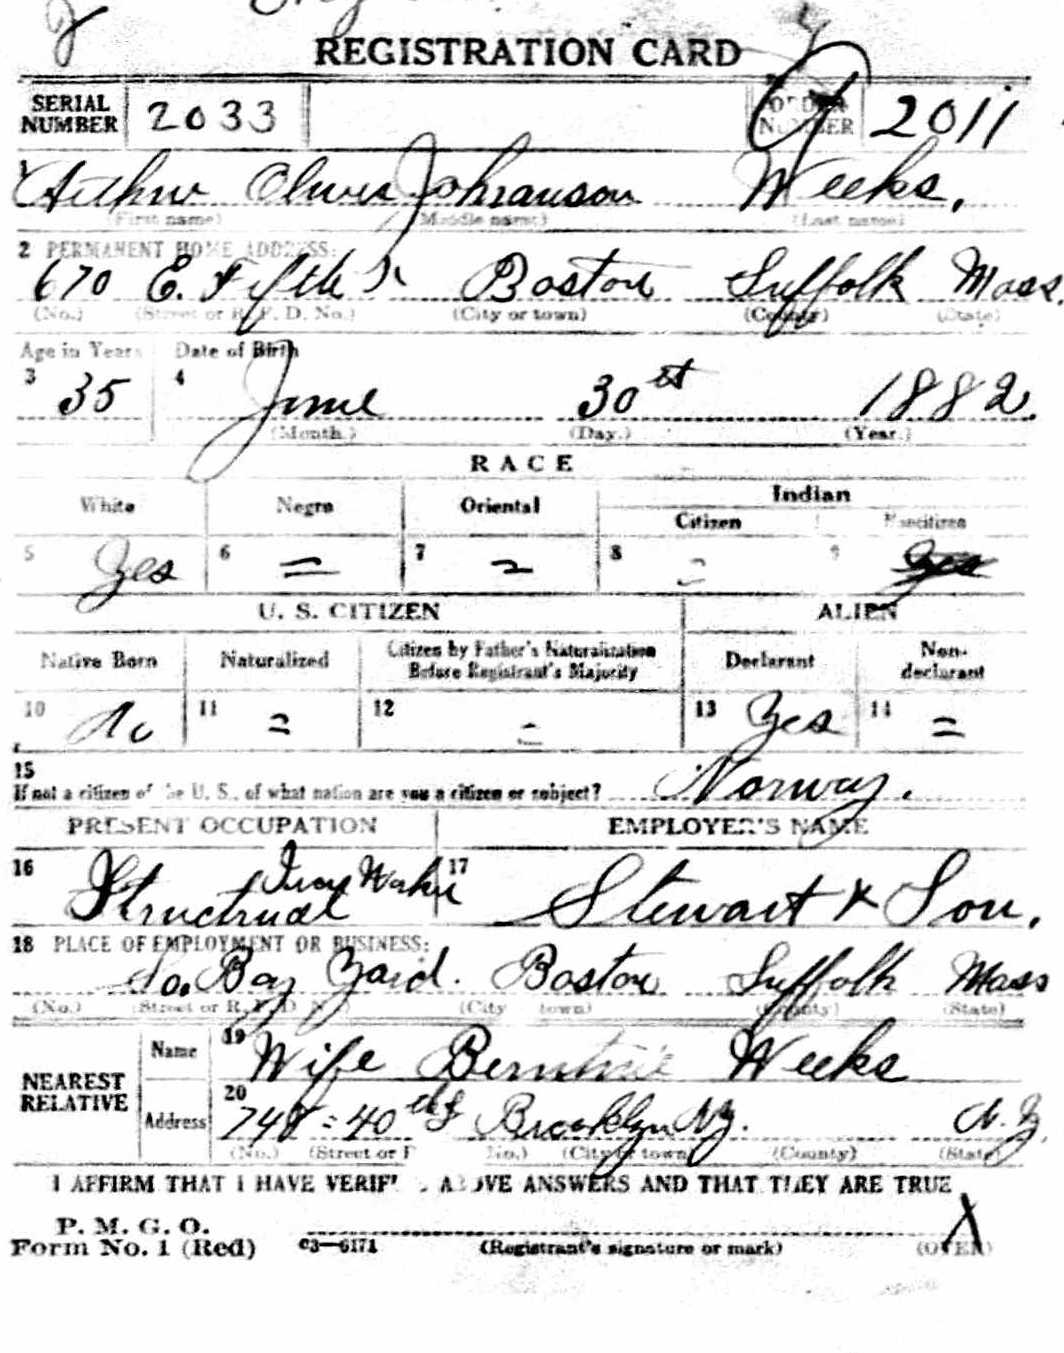 REGISTRATION CARD
SERIAL NUMBER 2033 ORDER NUMBER 2011
1 Arthur Oliver Johanson Weeks.
(First name) (Middle name) (Last name)
2 PERMANENT HOME ADDRESS:
670 E. Fifth St Boston Suffolk Mass.
(No.) (Street or R. F. D. No.) (City or town) (County) (State)
Age in Years Date of Birth
3 35 4 June 30th 1882.
(Month.) (Day.) (Year.)
RACE
White Negro Oriental Indian
Citizen Noncitizen
5 Yes 6 = 7 = 8 - 9 Yes
U. S. CITIZEN ALIEN
Native Born Naturalized Citizen by Father's Naturalization Before Registrant's Majority Declarant Non-declarant
10 No 11 = 12 = 13 Yes 14 =
15
If not a citizen of the U. S., of what nation are you a citizen or subject? Norway.
PRESENT OCCUPATION EMPLOYER'S NAME
16 Structrual Iron Worker 17 Stewart & Son.
18 PLACE OF EMPLOYMENT OR BUSINESS:
So. Bay Yard. Boston Suffolk Mass
(No.) (Street or R. F. D. No.) (City or town) (County) (State)
NEAREST RELATIVE
Name 19 Wife Weeks
Address 20 748 = 40th St Brooklyn Ny. N.Y.
(No.) (Street or R. F. D. No.) (City or town) (County) (State)
I AFFIRM THAT I HAVE VERIFIED ABOVE ANSWERS AND THAT THEY ARE TRUE
P. M. G. O.
Form No. 1 (Red) C3—6171 (Registrant's signature or mark) (OVER)